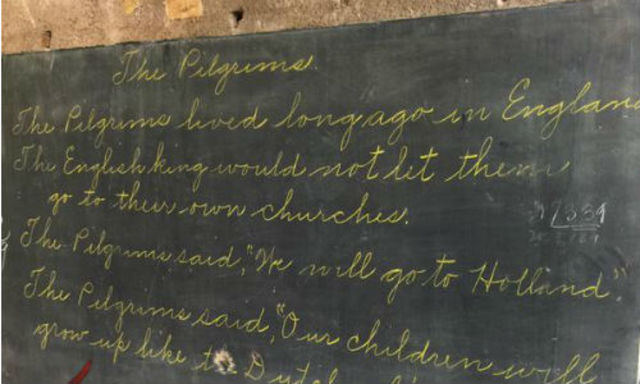 The Pilgrims.
The Pilgrims lived long ago in Englan
The English king would not let them
go to their own churches.
The Pilgrims said, "We will go to Holland."
The Pilgrims said, "Our children will
grow up like